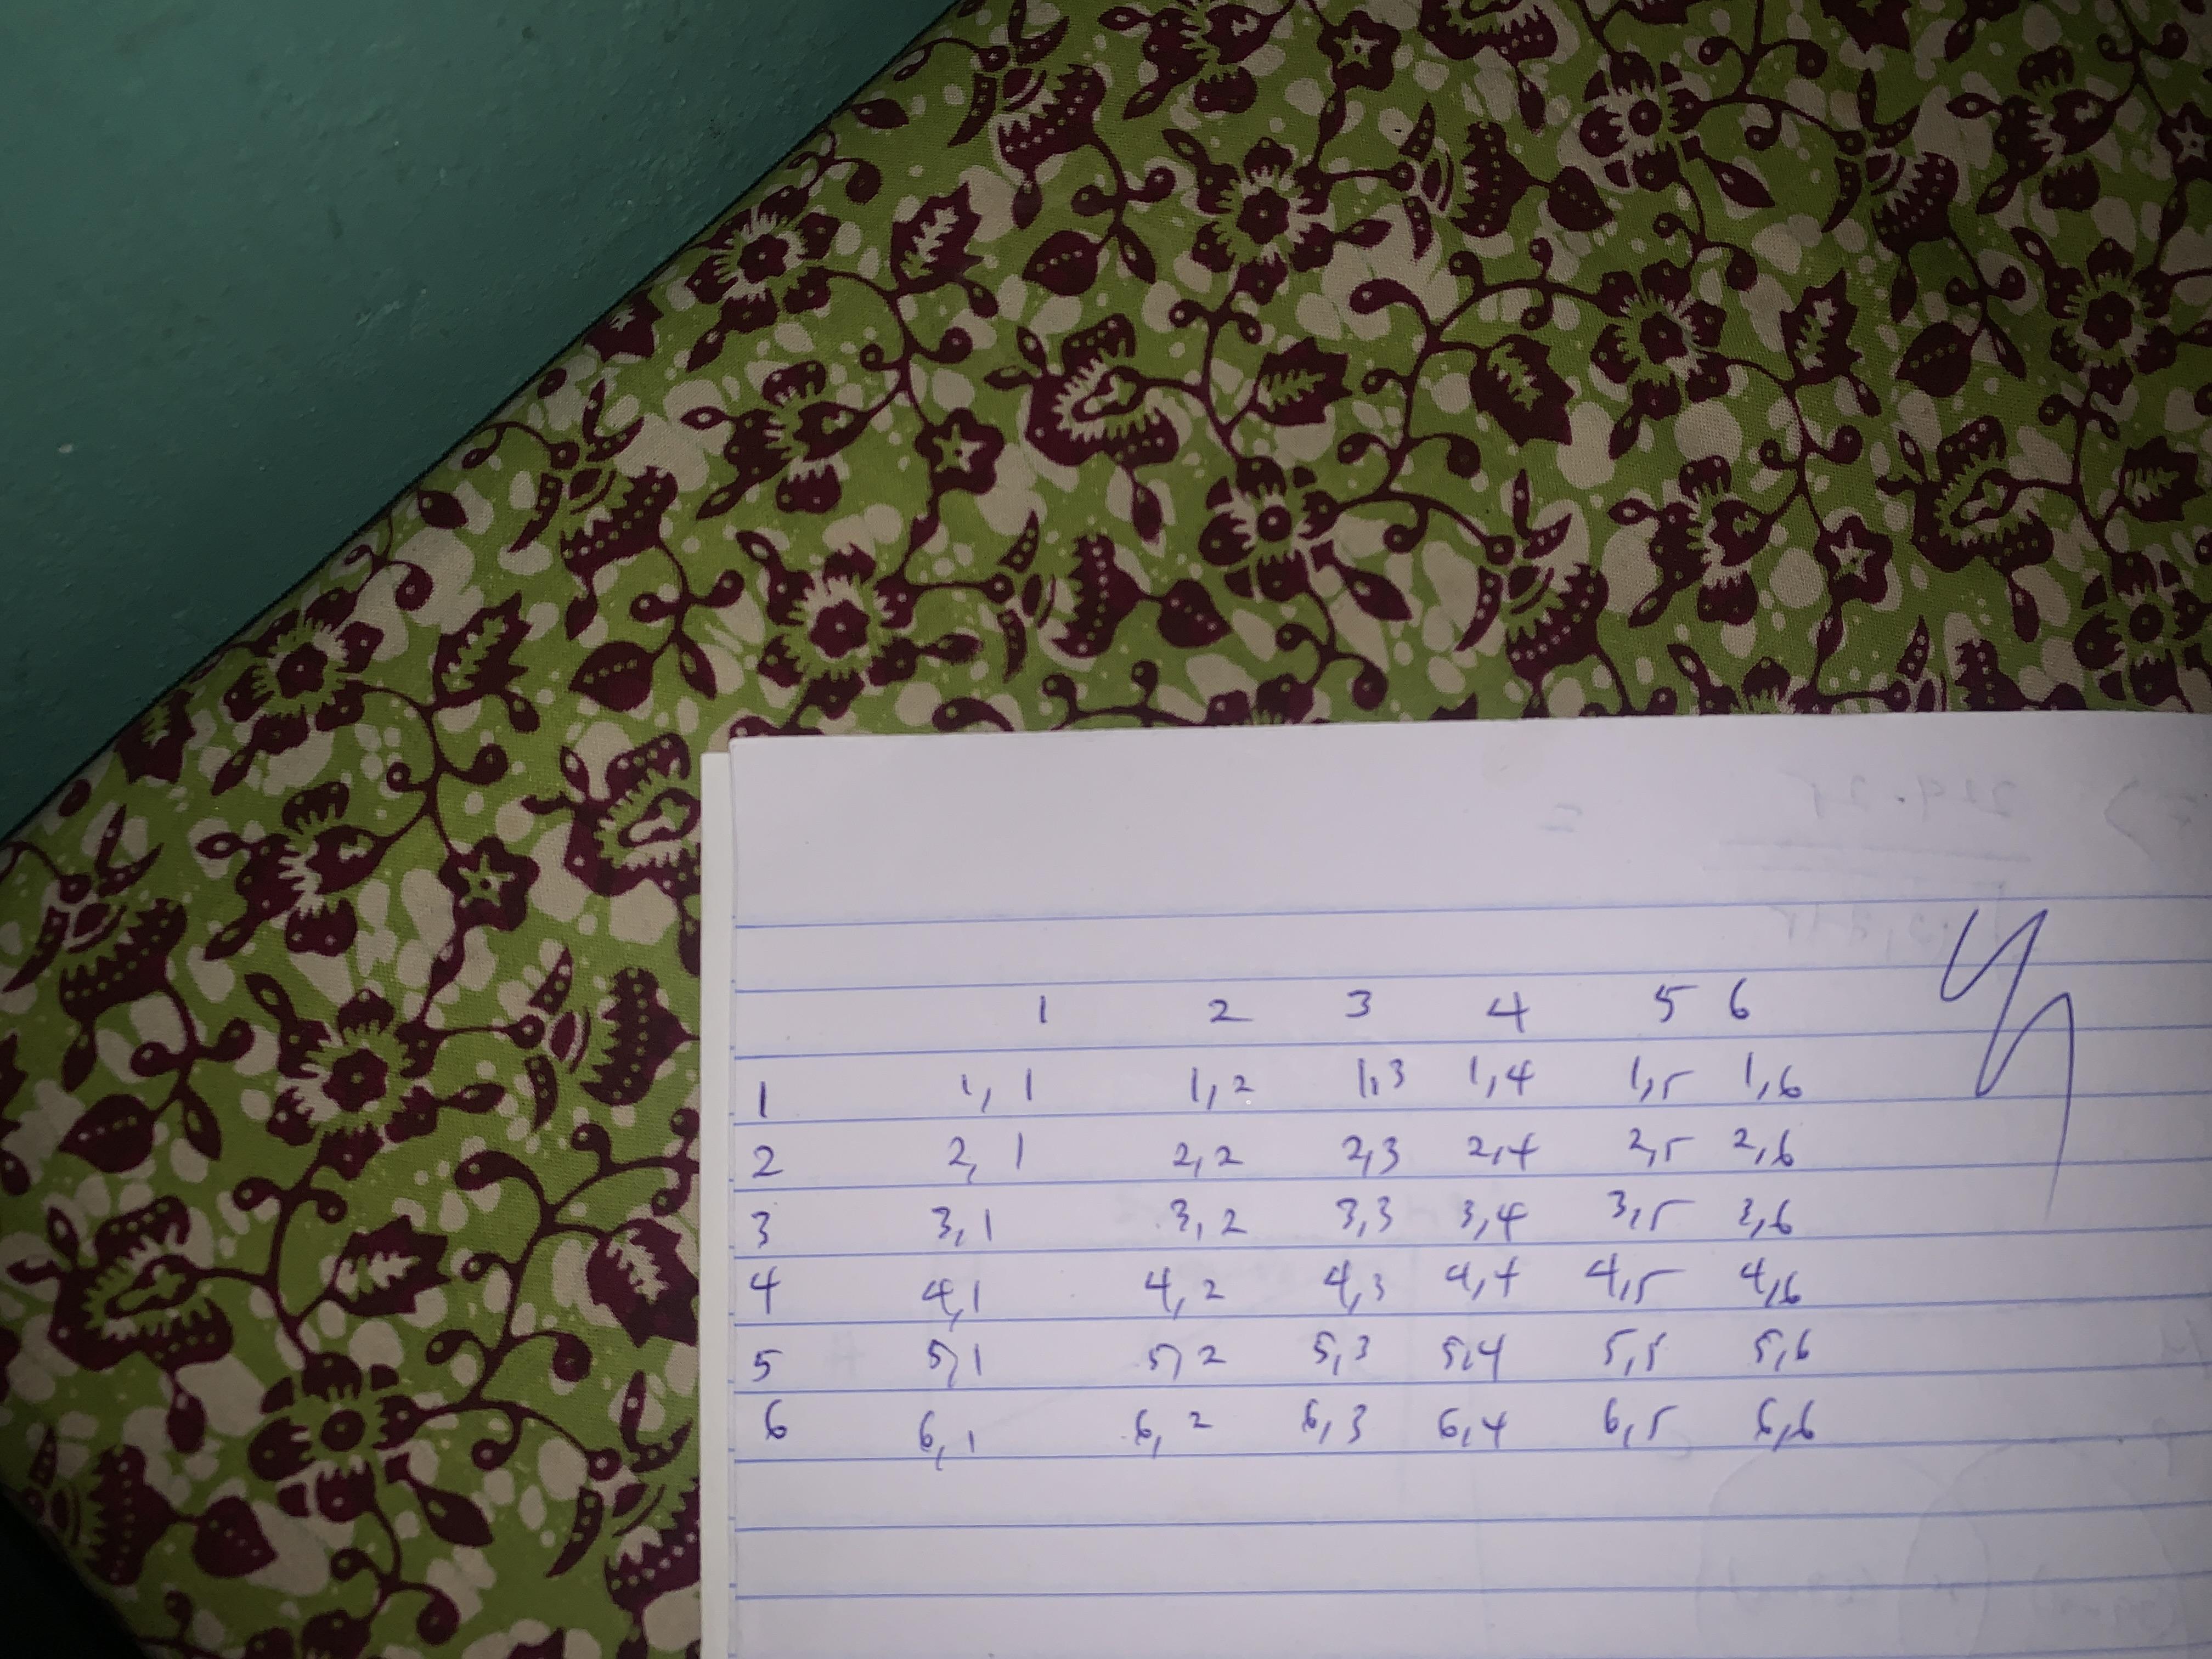 1 2 3 4 5 6
1 1,1 1,2 1,3 1,4 1,5 1,6
2 2,1 2,2 2,3 2,4 2,5 2,6
3 3,1 3,2 3,3 3,4 3,5 3,6
4 4,1 4,2 4,3 4,4 4,5 4,6
5 5,1 5,2 5,3 5,4 5,5 5,6
6 6,1 6,2 6,3 6,4 6,5 6,6